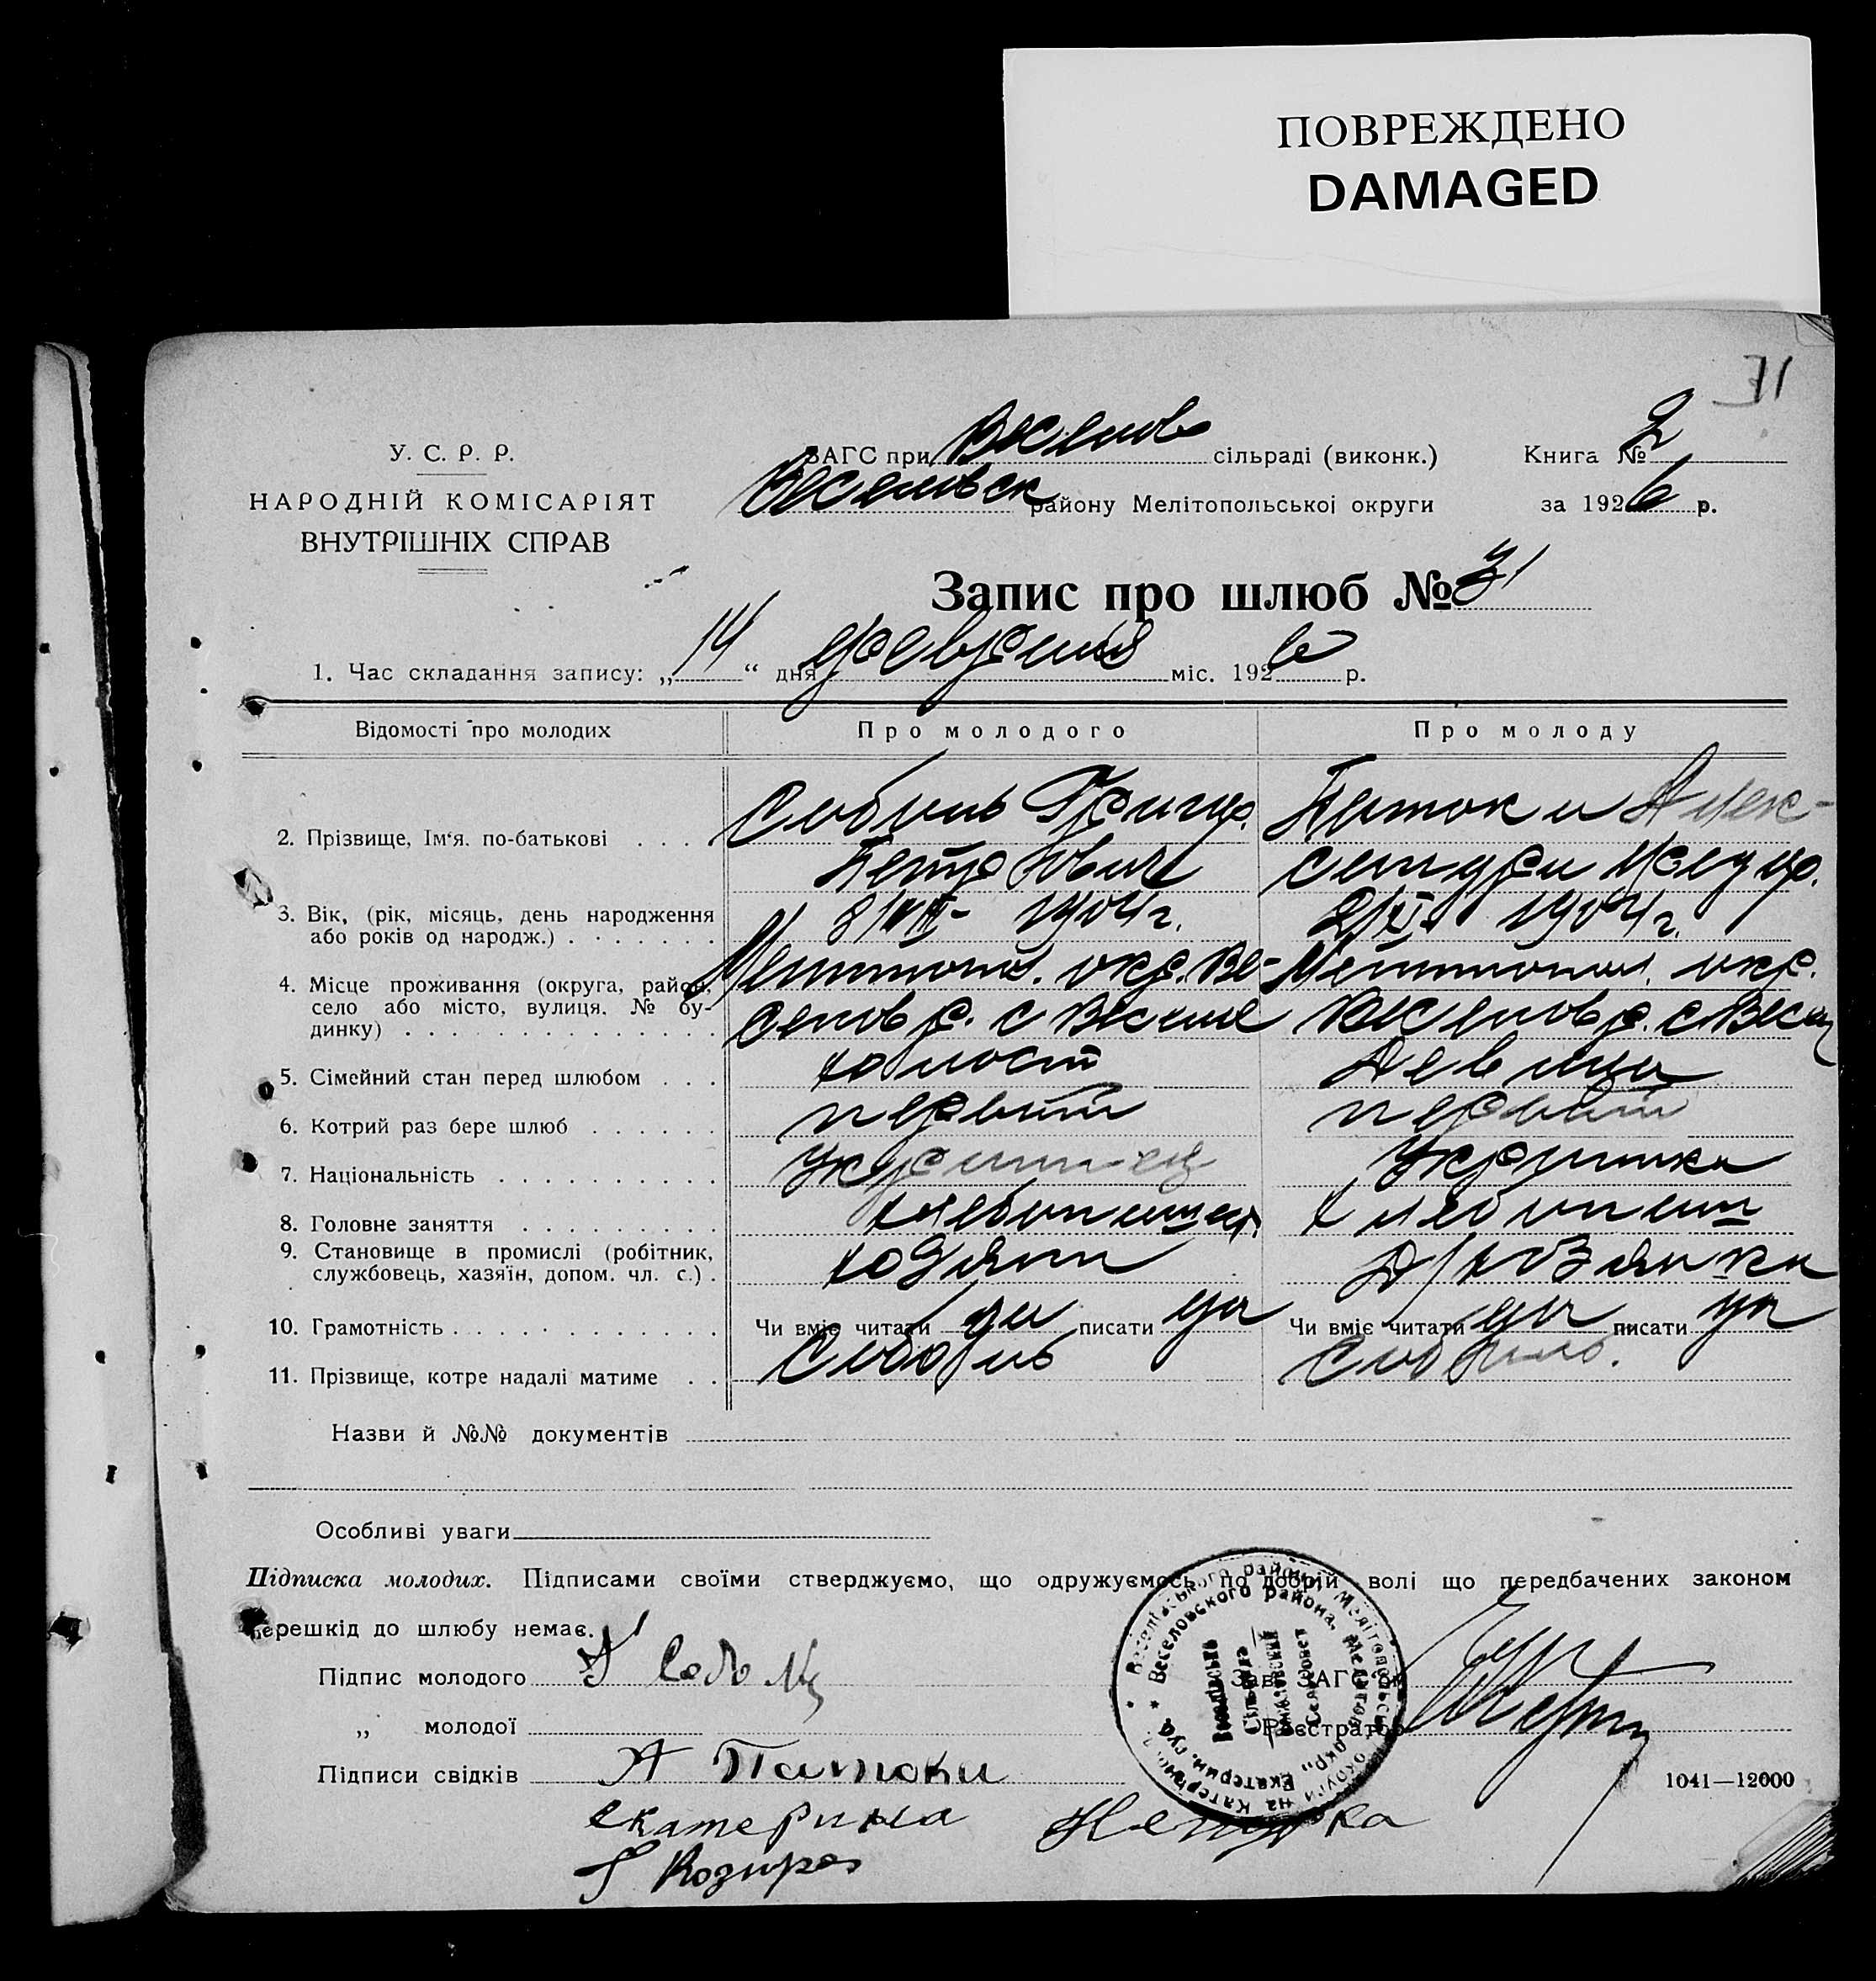 ПОВРЕЖДЕНО
DAMAGED
31
У. С. Р. Р.
НАРОДНІЙ КОМІСАРІЯТ
ВНУТРІШНІХ СПРАВ
ЗАГС при Веселов сільраді (виконк.)
Веселовск району Мелітопольськоі округи
Книга № 2
за 1926 р.
Запис про шлюб № 31
1. Час складання запису: „14“ дня февраля міс. 1926 р.
Відомості про молодих
Про молодого
Про молоду
2. Прізвище, Ім‘я. по-батькові . . . .
Соболь Григор.
Петрович
Патока Алек-
сандра Федор.
3. Вік, (рік, місяць, день народження
або років од народж.) . . . . . . .
8/VIII- 1904 г.
2/XI- 1904 г.
4. Місце проживання (округа, район,
село або місто, вулиця. № бу-
динку) . . . . . . . . . . . . . .
Мелитопол. окр. Ве-
селов р. с Веселое
Мелитопол. окр.
Веселов р. с Весел
5. Сімейний стан перед шлюбом . . .
холост
девица
6. Котрий раз бере шлюб . . . . . .
первый
первый
7. Національність . . . . . . . . . .
Украинец
Украинка
8. Головне заняття . . . . . . . . .
хлебопашец
хлебопаш
9. Становище в промислі (робітник,
службовець, хазяїн, допом. чл. с.) .
хозяин
10. Грамотність . . . . . . . . . . . .
Чи вміє читати да писати да
Чи вміє читати да писати да
11. Прізвище, котре надалі матиме . .
Соболь
Соболь.
Назви й №№ документів
Особливі уваги
Підписка молодих. Підписами своїми стверджуємо, що одружуємось по добрій волі що передбачених законом
перешкід до шлюбу немає.
Підпис молодого
„ молодої
Зав. ЗАГС‘ом
Реєстратор
Підписи свідків А Патока
Екатерина
Козирев
1041—12000
Веселівського району, Мелітопольськ. округи на Катеринославщ.
Веселовского района, Мелитоп. окр., Екатерин. губ.
Веселівська
Сільрада
Веселовский
Сельсовет